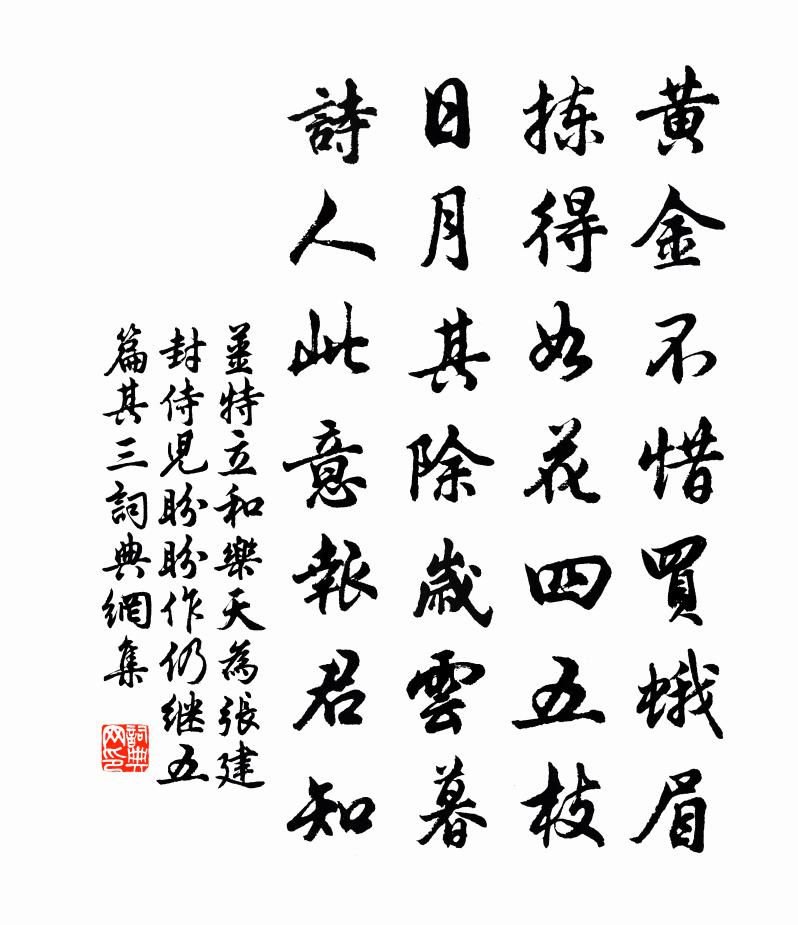 黄金不惜買蛾眉
拣得如花四五枝
日月其除歲雲暮
詩人此意報君知
姜特立和樂天為張建
封侍兒盼盼作仍继五
篇其三詞典網集
詞典网印